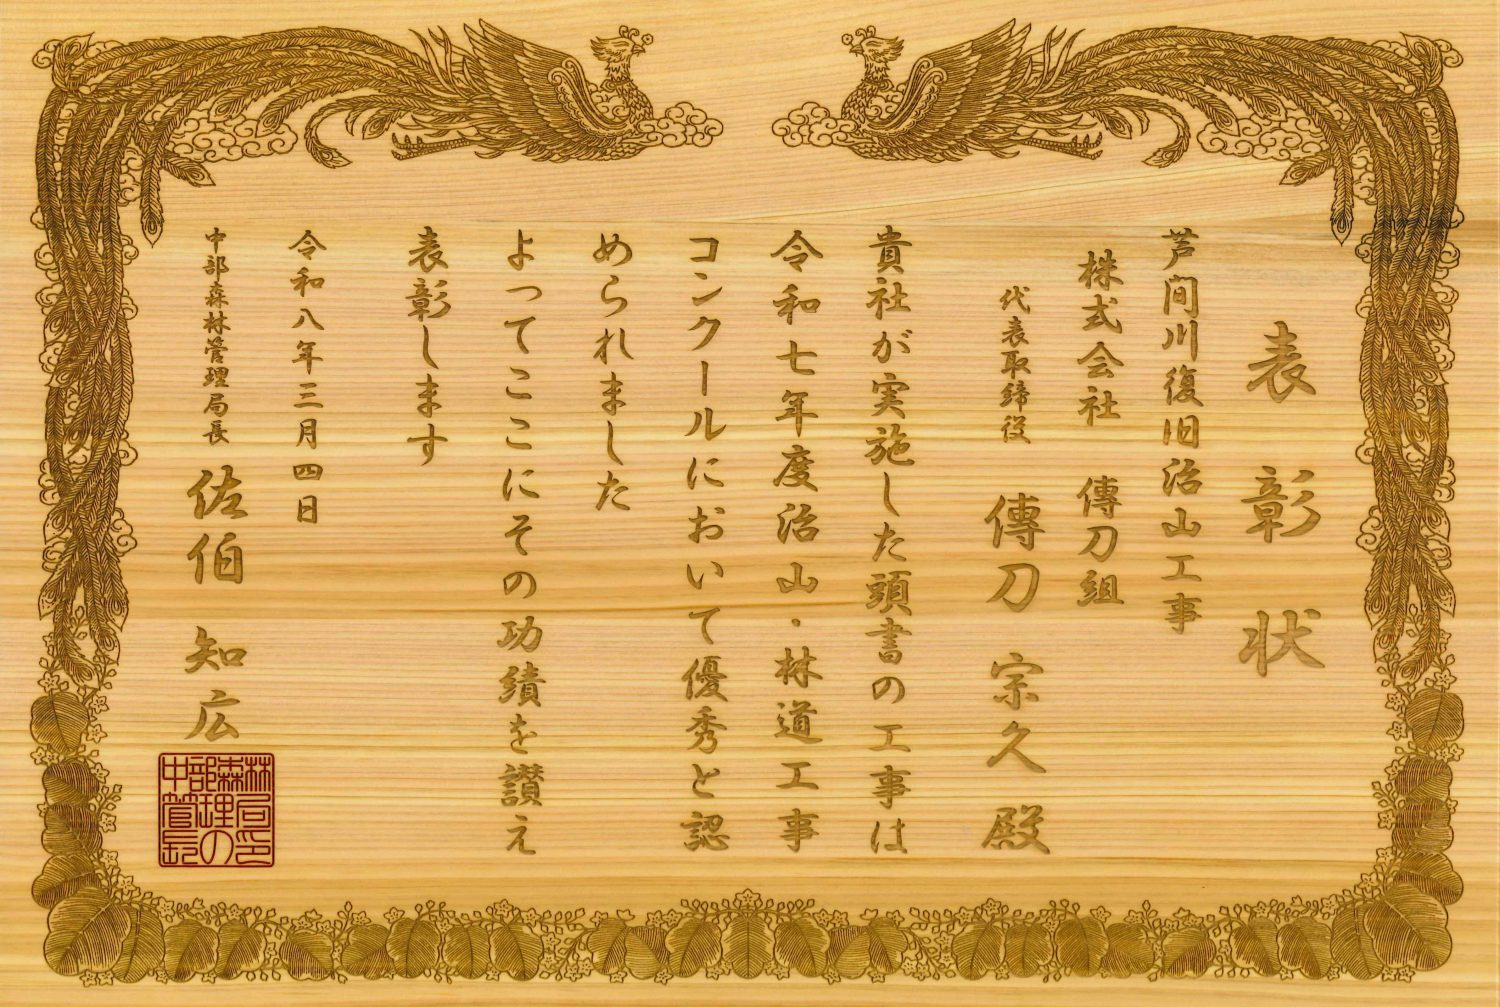 表彰状
芦間川復旧治山工事
株式会社 傳刀組
代表取締役 傳刀 宗久 殿
貴社が実施した頭書の工事は
令和七年度治山・林道工事
コンクールにおいて優秀と認
められました
よってここにその功績を讃え
表彰します
令和八年三月四日
中部森林管理局長 佐伯 知広
中部森林管理局長の印